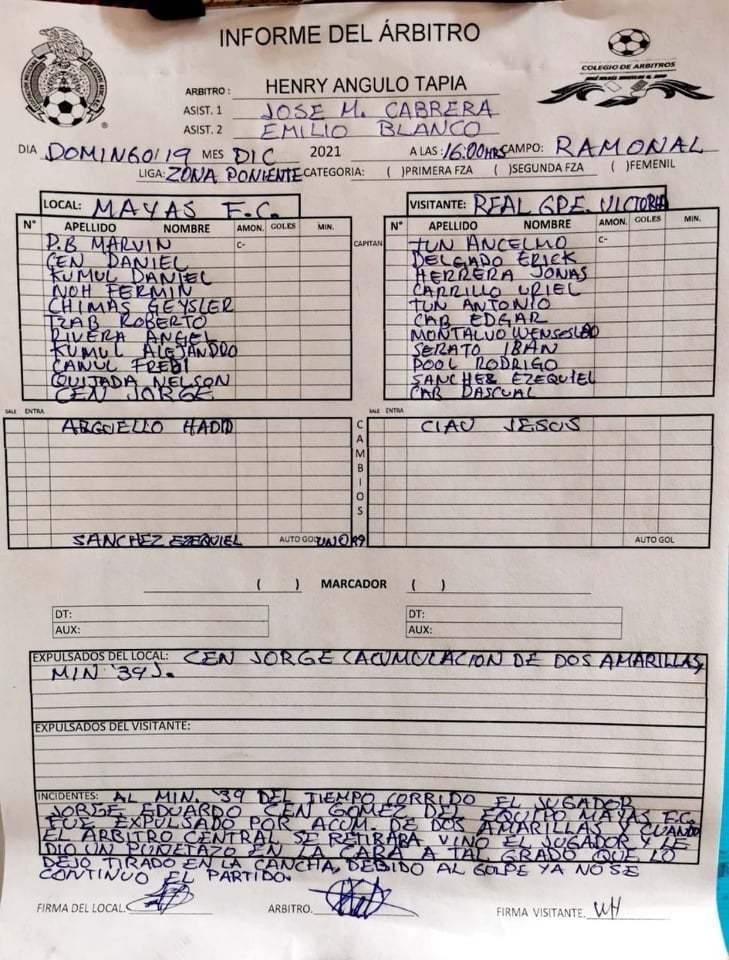 INFORME DEL ÁRBITRO
COLEGIO DE ARBITROS
ARBITRO: HENRY ANGULO TAPIA
ASIST. 1 JOSE M. CABRERA
ASIST. 2 EMILIO BLANCO
DIA DOMINGO/19 MES DIC 2021 A LAS: 16:00HRS CAMPO: RAMONAL
LIGA: ZONA PONIENTE CATEGORIA: ( )PRIMERA FZA ( )SEGUNDA FZA ( )FEMENIL
LOCAL: MAYAS F.C.
N° APELLIDO NOMBRE AMON. GOLES MIN.
P.B MARVIN C-
CEN DANIEL
KUMUL DANIEL
NOH FERMIN
CHIMAS GEYSLER
TZAB ROBERTO
RIVERA ANGEL
KUMUL ALEJANDRO
CANUL FREDI
QUIJADA NELSON
CEN JORGE
CAPITAN
VISITANTE: REAL GPE. VICTORIA
N° APELLIDO NOMBRE AMON. GOLES MIN.
TUN ANCELMO C-
DELGADO ERICK
HERRERA JONAS
CARRILLO URIEL
TUN ANTONIO
CAB EDGAR
MONTALVO WENSESLAO
SERATO IBAN
POOL RODRIGO
SANCHEZ EZEQUIEL
CAB PASCUAL
SALE ENTRA
ARGUELLO HADID
SANCHEZ EZEQUIEL AUTO GOL UNO
CAMBIOS
SALE ENTRA
CIAU JESUS
AUTO GOL
( ) MARCADOR ( )
DT: DT:
AUX: AUX:
EXPULSADOS DEL LOCAL: CEN JORGE (ACUMULACION DE DOS AMARILLAS,
MIN '39).
EXPULSADOS DEL VISITANTE:
INCIDENTES: AL MIN. '39 DEL TIEMPO CORRIDO EL JUGADOR
JORGE EDUARDO CEN GOMEZ DEL EQUIPO MAYAS F.C.
FUE EXPULSADO POR ACUM. DE DOS AMARILLAS Y CUANDO
EL ARBITRO CENTRAL SE RETIRABA VINO EL JUGADOR Y LE
DIO UN PUÑETAZO EN LA CARA A TAL GRADO QUE LO
DEJO TIRADO EN LA CANCHA, DEBIDO AL GOLPE YA NO SE
CONTINUO EL PARTIDO.
FIRMA DEL LOCAL. ARBITRO. FIRMA VISITANTE.